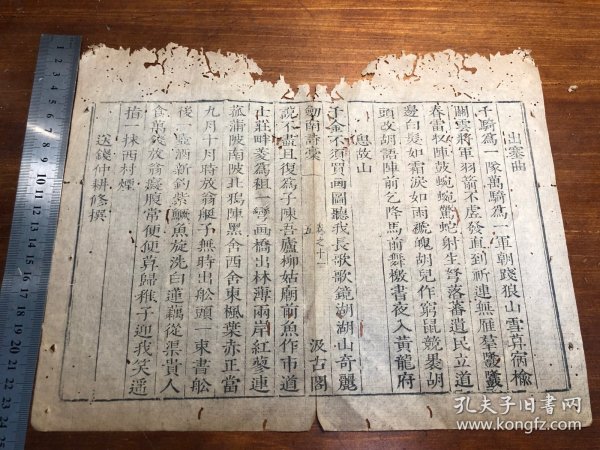 出塞曲
千騎爲一隊萬騎爲一軍朝踐狼山雪暮宿榆
關雲將軍羽箭不虛發直到祈連無雁羣隆隆
春雷收陣鼓蜿蜿驚蛇射生弩落蕃遺民立道
邊白髮如霜淚如雨褫魄胡兒作窮鼠競裹胡
頭改胡語陣前乞降馬前舞檄書夜入黃龍府
思故山
千金不須買画圖聽我長歌歌鏡湖湖山奇麗
劒南詩稾
卷之十一
五
汲古閣
說不盡且復爲子陳吾廬柳姑廟前魚作市道
士莊畔菱爲租一彎画橋出林薄兩岸紅蓼連
菰蒲陂南陂北鴉陣黑舍西舍東楓葉赤正當
九月十月時放翁艇子無時出船頭一束書船
後一壺酒新釣紫鱖魚旋洗白蓮藕從渠貴人
食萬錢放翁癡腹常便便暮歸稚子迎我笑遥
指一抹西村煙
送錢仲耕修撰
孔夫子旧书网
book.kongfz.com